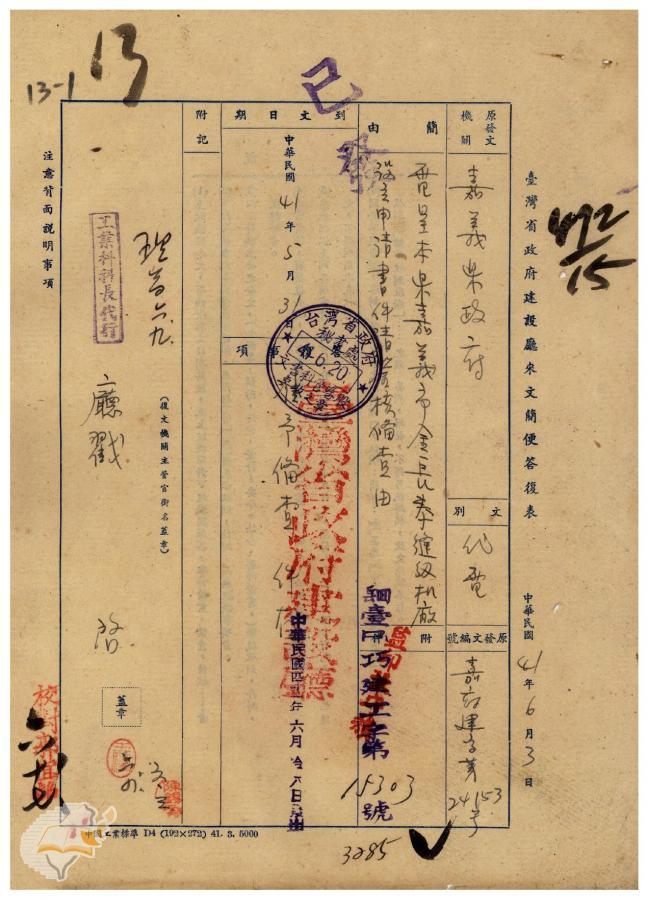 13-1
13
已發
492
15
臺灣省政府建設廳來文簡便答復表
中華民國41年6月3日
原發文機關
嘉義県政府
文別
代電
原發文編號
嘉府建字第
24153号
簡由
電呈本県嘉義市金長泰縫紉机廠
設立申請書件請
核備查由
附
鋼臺四
建工字第
15303
號
3285
到文日期
中華民國41年5月31日
事項
予備查件存
台灣省政府
6.20
臺灣省政府建設廳
中華民國四
六月
八日
附記
(復文機關主管官銜名蓋章)
工業科科長代行
廳戳
啓
蓋章
校對
監印
注意背面說明事項
中國工業標準 D4 (192×272) 41. 3. 5000